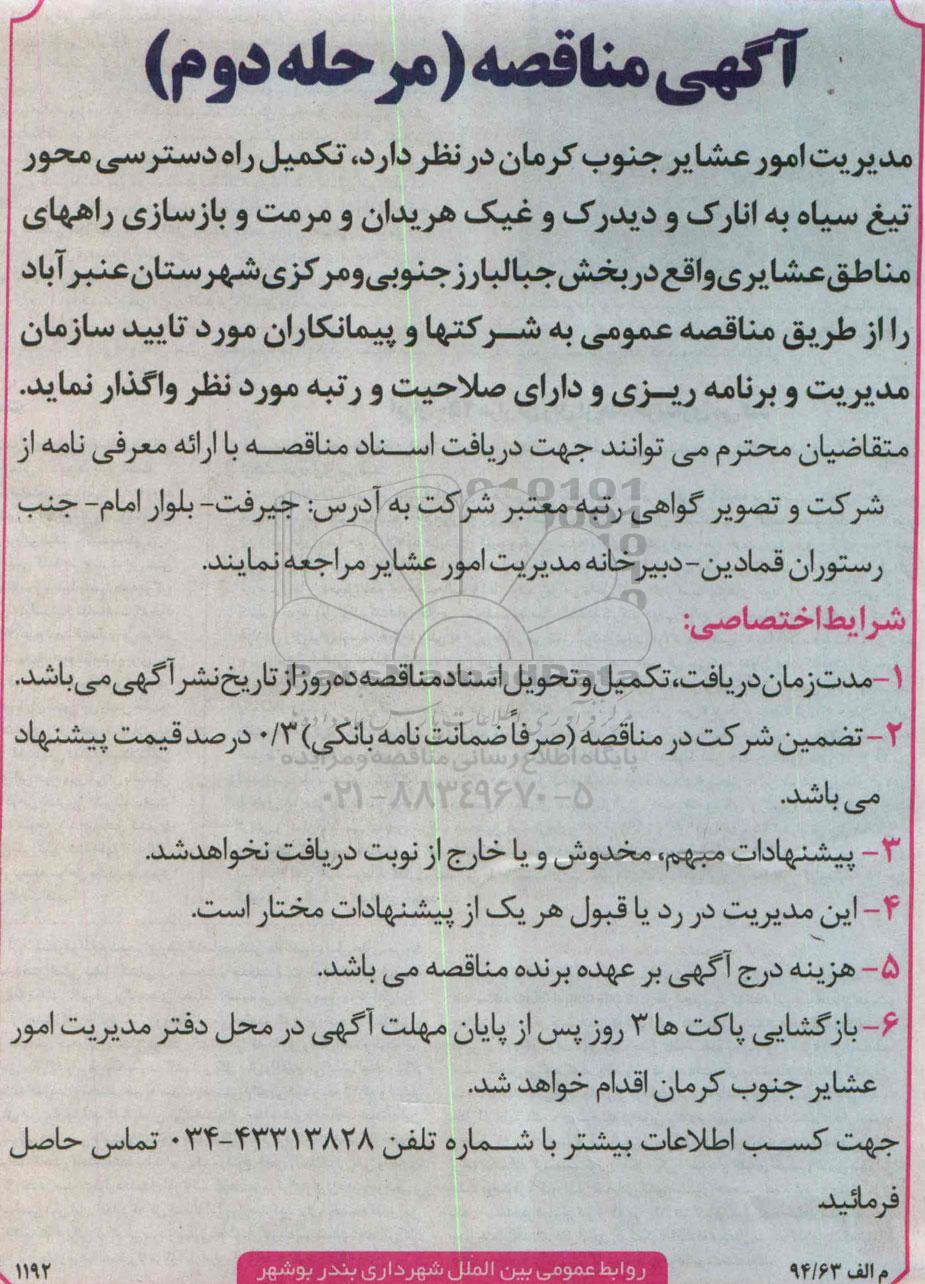 آگهی مناقصه (مرحله دوم)
مدیریت امور عشایر جنوب کرمان در نظر دارد، تکمیل راه دسترسی محور
تیغ سیاه به انارک و دیدرک و غیک هریدان و مرمت و بازسازی راههای
مناطق عشایری واقع در بخش جبالبارز جنوبی و مرکزی شهرستان عنبرآباد
را از طریق مناقصه عمومی به شرکتها و پیمانکاران مورد تایید سازمان
مدیریت و برنامه ریزی و دارای صلاحیت و رتبه مورد نظر واگذار نماید.
متقاضیان محترم می توانند جهت دریافت اسناد مناقصه با ارائه معرفی نامه از
شرکت و تصویر گواهی رتبه معتبر شرکت به آدرس: جیرفت- بلوار امام- جنب
رستوران قمادین- دبیرخانه مدیریت امور عشایر مراجعه نمایند.
شرایط اختصاصی:
۱-مدت زمان دریافت، تکمیل و تحویل اسناد مناقصه ده روز از تاریخ نشر آگهی می باشد.
ParsNamadData
۲- تضمین شرکت در مناقصه (صرفاً ضمانت نامه بانکی) ۰/۳ درصد قیمت پیشنهاد
پایگاه اطلاع رسانی مناقصه و مزایده
می باشد.
۰۲۱-۸۸۳۴۹۶۷۰-۵
۳- پیشنهادات مبهم، مخدوش و یا خارج از نوبت دریافت نخواهدشد.
۴- این مدیریت در رد یا قبول هر یک از پیشنهادات مختار است.
۵- هزینه درج آگهی بر عهده برنده مناقصه می باشد.
۶- بازگشایی پاکت ها ۳ روز پس از پایان مهلت آگهی در محل دفتر مدیریت امور
عشایر جنوب کرمان اقدام خواهد شد.
جهت کسب اطلاعات بیشتر با شماره تلفن ۴۳۳۱۳۸۲۸-۰۳۴ تماس حاصل
فرمائید.
م الف ۹۴/۶۳
روابط عمومی بین الملل شهرداری بندر بوشهر
۱۱۹۲